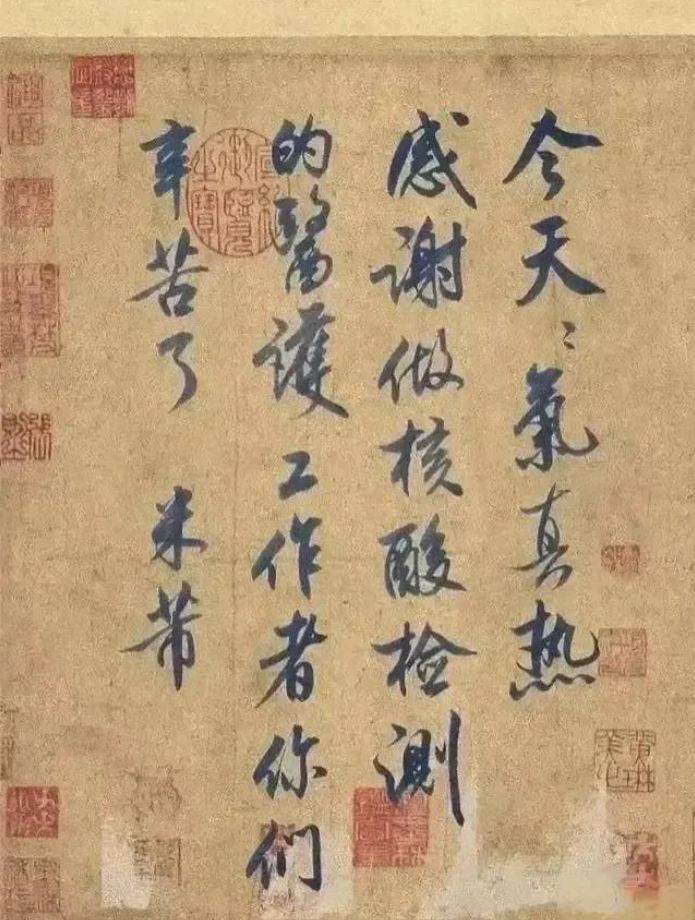 今天〻氣真热
感谢做核酸检测
的醫護工作者你们
辛苦了 米芾